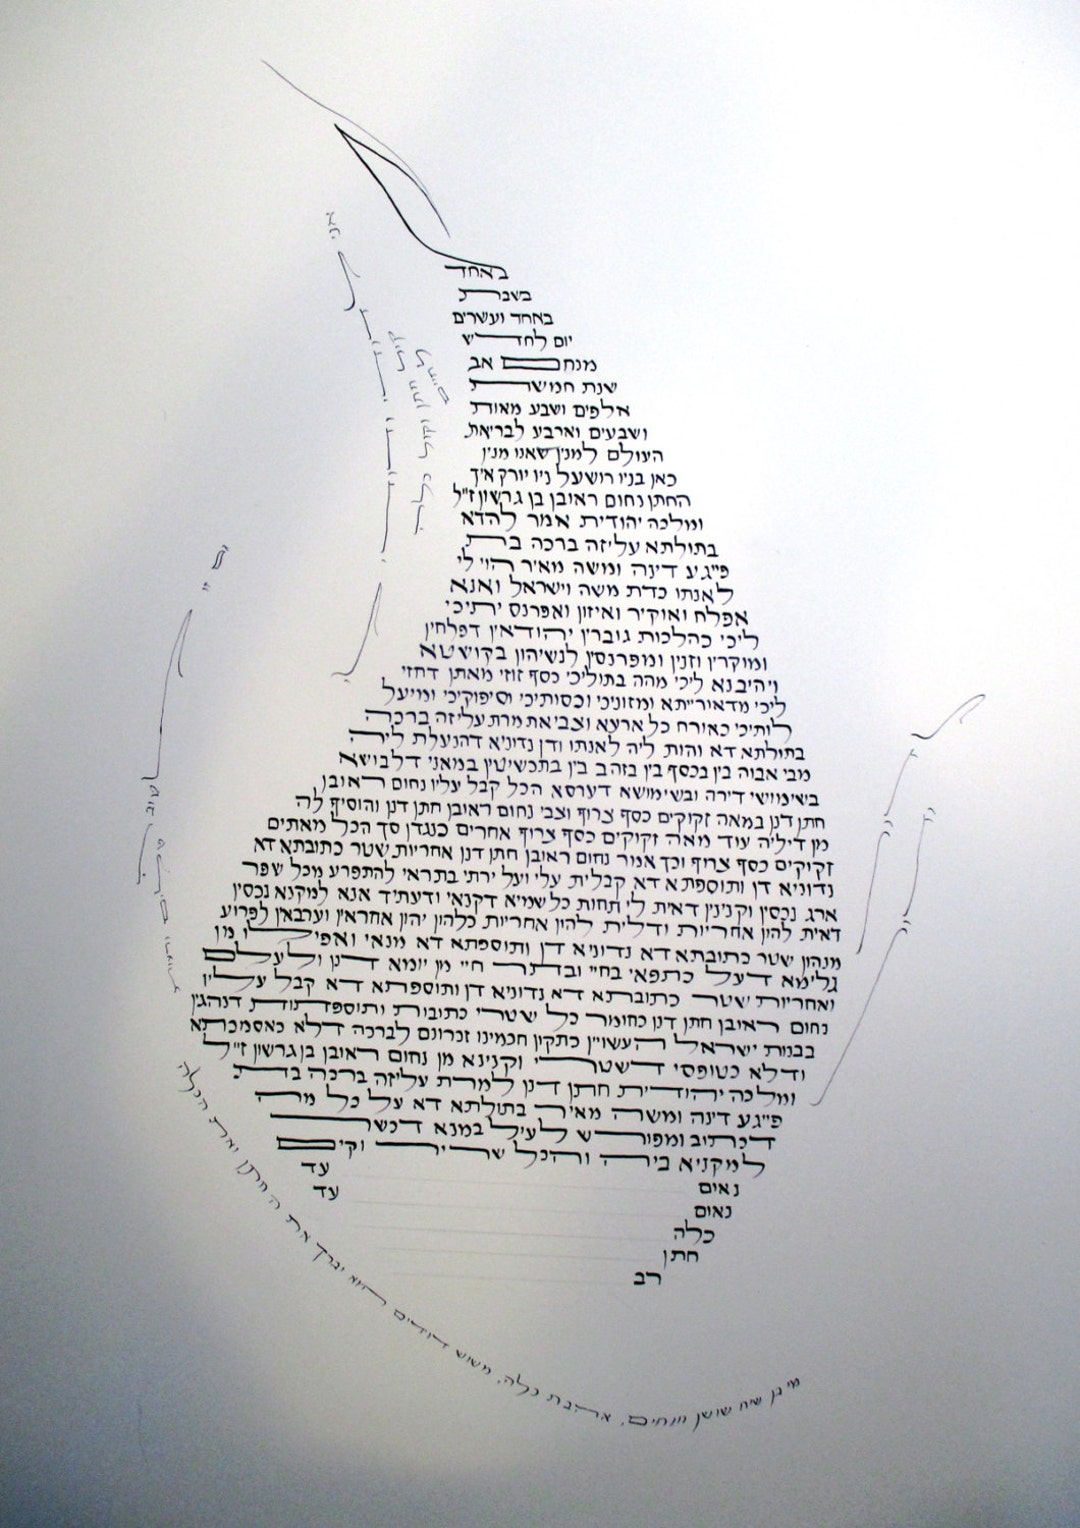 באחד
בשבת
באחד ועשרים
יום לחדש
מנחם אב
שנת חמשת
אלפים ושבע מאות
ושבעים וארבע לבריאת
העולם למנין שאנו מנין
כאן בניו רושעל ניו יורק איך
החתן נחום ראובן בן גרשון ז״ל
ומלכה יהודית אמר להדא
בתולתא עליזה ברכה בת
פייגע דינה ומשה מאיר הוי לי
לאנתו כדת משה וישראל ואנא
אפלח ואוקיר ואיזון ואפרנס יתיכי
ליכי כהלכות גוברין יהודאין דפלחין
ומוקרין וזנין ומפרנסין לנשיהון בקושטא
ויהיבנא ליכי מהר בתוליכי כסף זוזי מאתן דחזי
ליכי מדאורייתא ומזוניכי וכסותיכי וסיפוקיכי ומיעל
לותיכי כאורח כל ארעא וצביאת מרת עליזה ברכה
בתולתא דא והות ליה לאנתו ודן נדוניא דהנעלת ליה
מבי אבוה בין בכסף בין בזהב בין בתכשיטין במאני דלבושא
בשימושי דירה ובשימושא דערסא הכל קבל עליו נחום ראובן
חתן דנן במאה זקוקים כסף צרוף וצבי נחום ראובן חתן דנן והוסיף לה
מן דיליה עוד מאה זקוקים כסף צרוף אחרים כנגדן סך הכל מאתים
זקוקים כסף צרוף וכך אמר נחום ראובן חתן דנן אחריות שטר כתובתא דא
נדוניא דן ותוספתא דא קבלית עלי ועל ירתי בתראי להתפרע מכל שפר
ארג נכסין וקנינין דאית לי תחות כל שמיא דקנאי ודעתיד אנא למקנא נכסין
דאית להון אחריות ודלית להון אחריות כלהון יהון אחראין וערבאין לפרוע
מנהון שטר כתובתא דא נדוניא דן ותוספתא דא מנאי ואפילו מן
גלימא דעל כתפאי בחיי ובתר חיי מן יומא דנן ולעלם
ואחריות שטר כתובתא דא נדוניא דן ותוספתא דא קבל עליו
נחום ראובן חתן דנן כחומר כל שטרי כתובות ותוספתות דנהגין
בבנות ישראל העשויין כתקון חכמינו זכרונם לברכה דלא כאסמכתא
ודלא כטופסי דשטרי וקנינא מן נחום ראובן בן גרשון ז״ל
ומלכה יהודית חתן דנן למרת עליזה ברכה בת
פייגע דינה ומשה מאיר בתולתא דא על כל מה
דכתיב ומפורש לעיל במנא דכשר
למקניא ביה והכל שריר וקים
נאים עד
נאים עד
כלה
חתן
רב
קול חתן וקול כלה
אהבת כלה, משוש דודים הוא יברך את החתן ואת הכלה